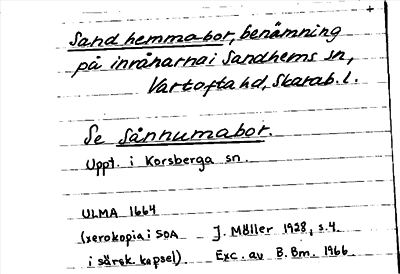 +
Sand hemmabor, benämning
på invånarna i Sandhems sn,
Vartofta hd, Skarab. l.
Se Sånnumabor.
Uppt. i Korsberga sn.
ULMA 1664
(xerokopia i SOA J. Möller 1928, s. 4.
i särsk. kapsel). Exc. av B. Bm. 1966